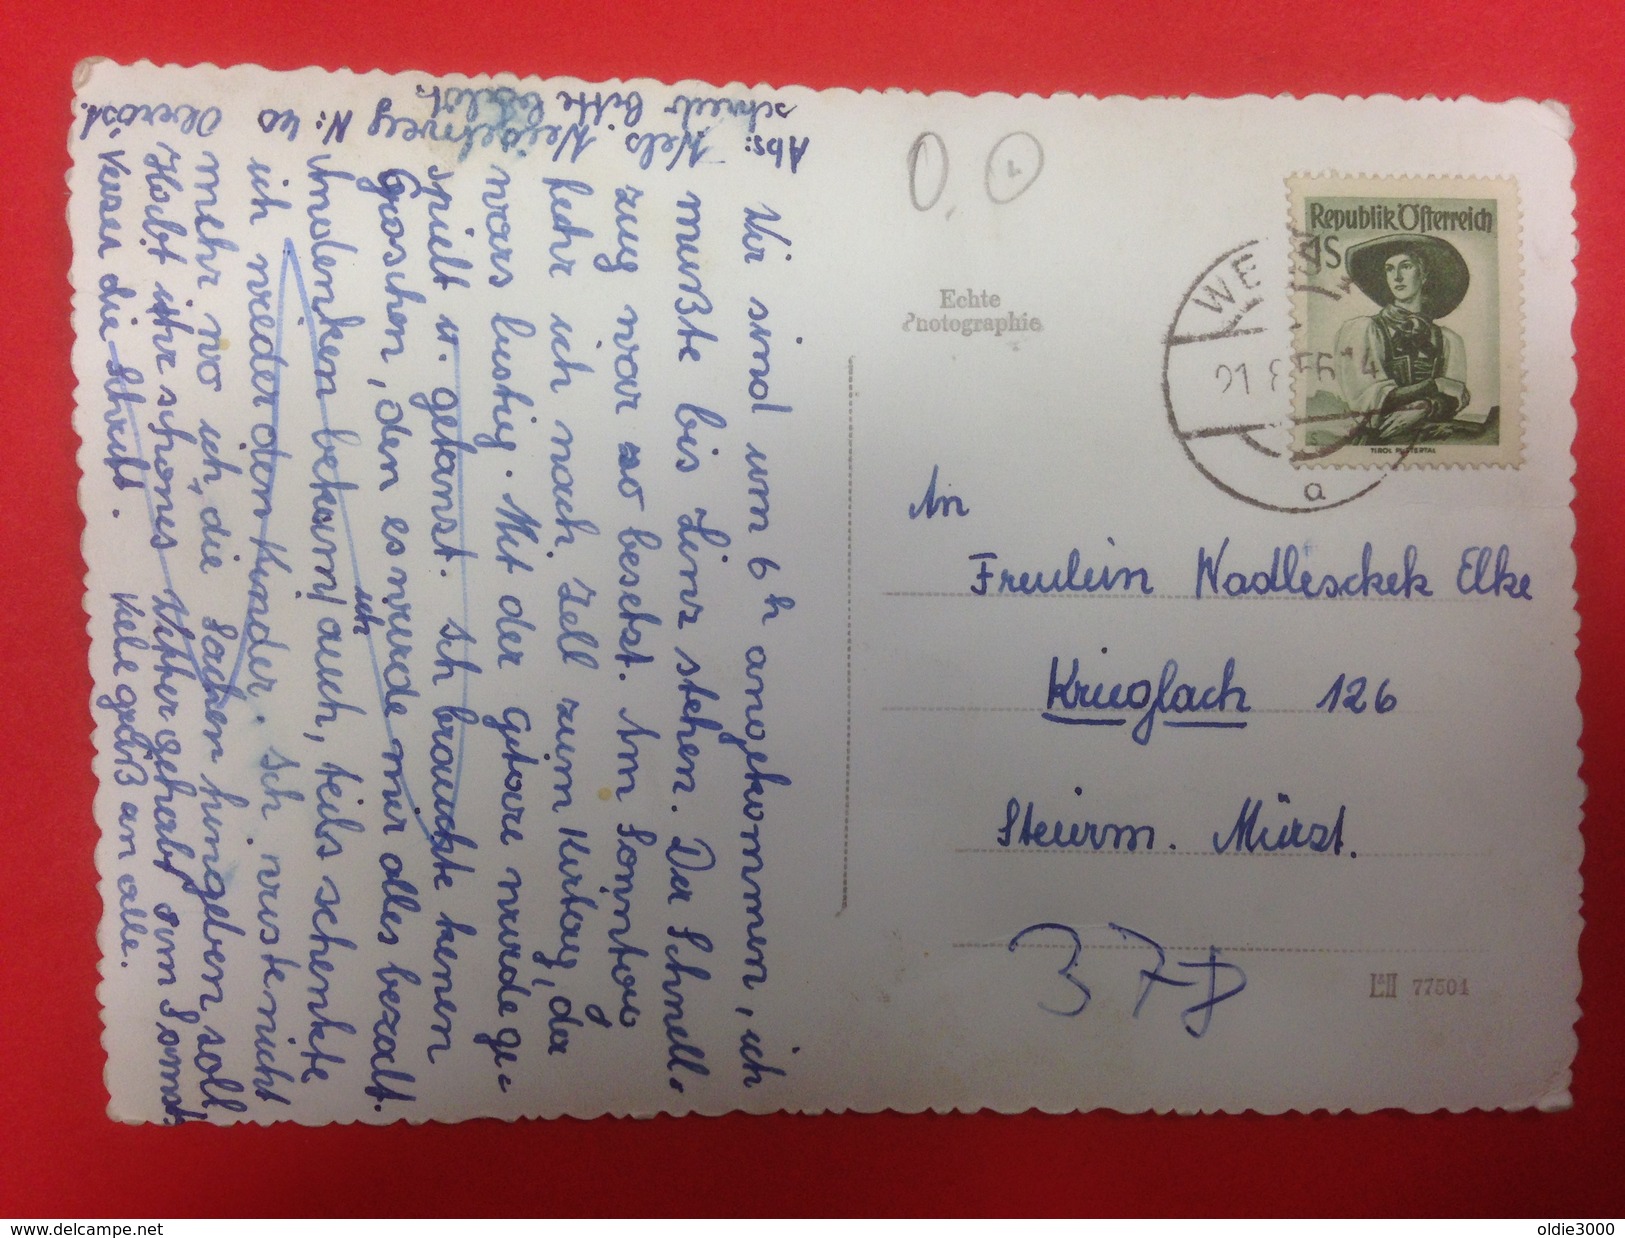 Wir sind um 6h angekommen, ich
mußte bis Linz stehen. Der Schnell-
zug war so besetzt. Am Sonntag
fuhr ich nach Zell zum Kirtag, da
wars lustig. Mit der Gitarre wurde ge-
spielt u. getanzt. Ich brauchte keinen
Groschen, den es wurde mir alles bezalt.
Andenken bekam ich auch, teils schenkte
ich wieder den Kinder. Ich wüste nicht
mehr wo ich die Sachen hingeben soll.
Habt ihr schönes Wetter gehabt zum Samst.
Viele grüß an alle.
Abs: Wels Neidelweg N: 40 Oberöst.
schreib bitte
Echte
Photographie
Republik Österreich
1S
TIROL PUSTERTAL
WE
21.8.56 14
a
An
Freulein Wadleschek Elke
Krieglach 126
Steierm. Mürzt.
378
LII 77501
delcampe.net
oldie3000